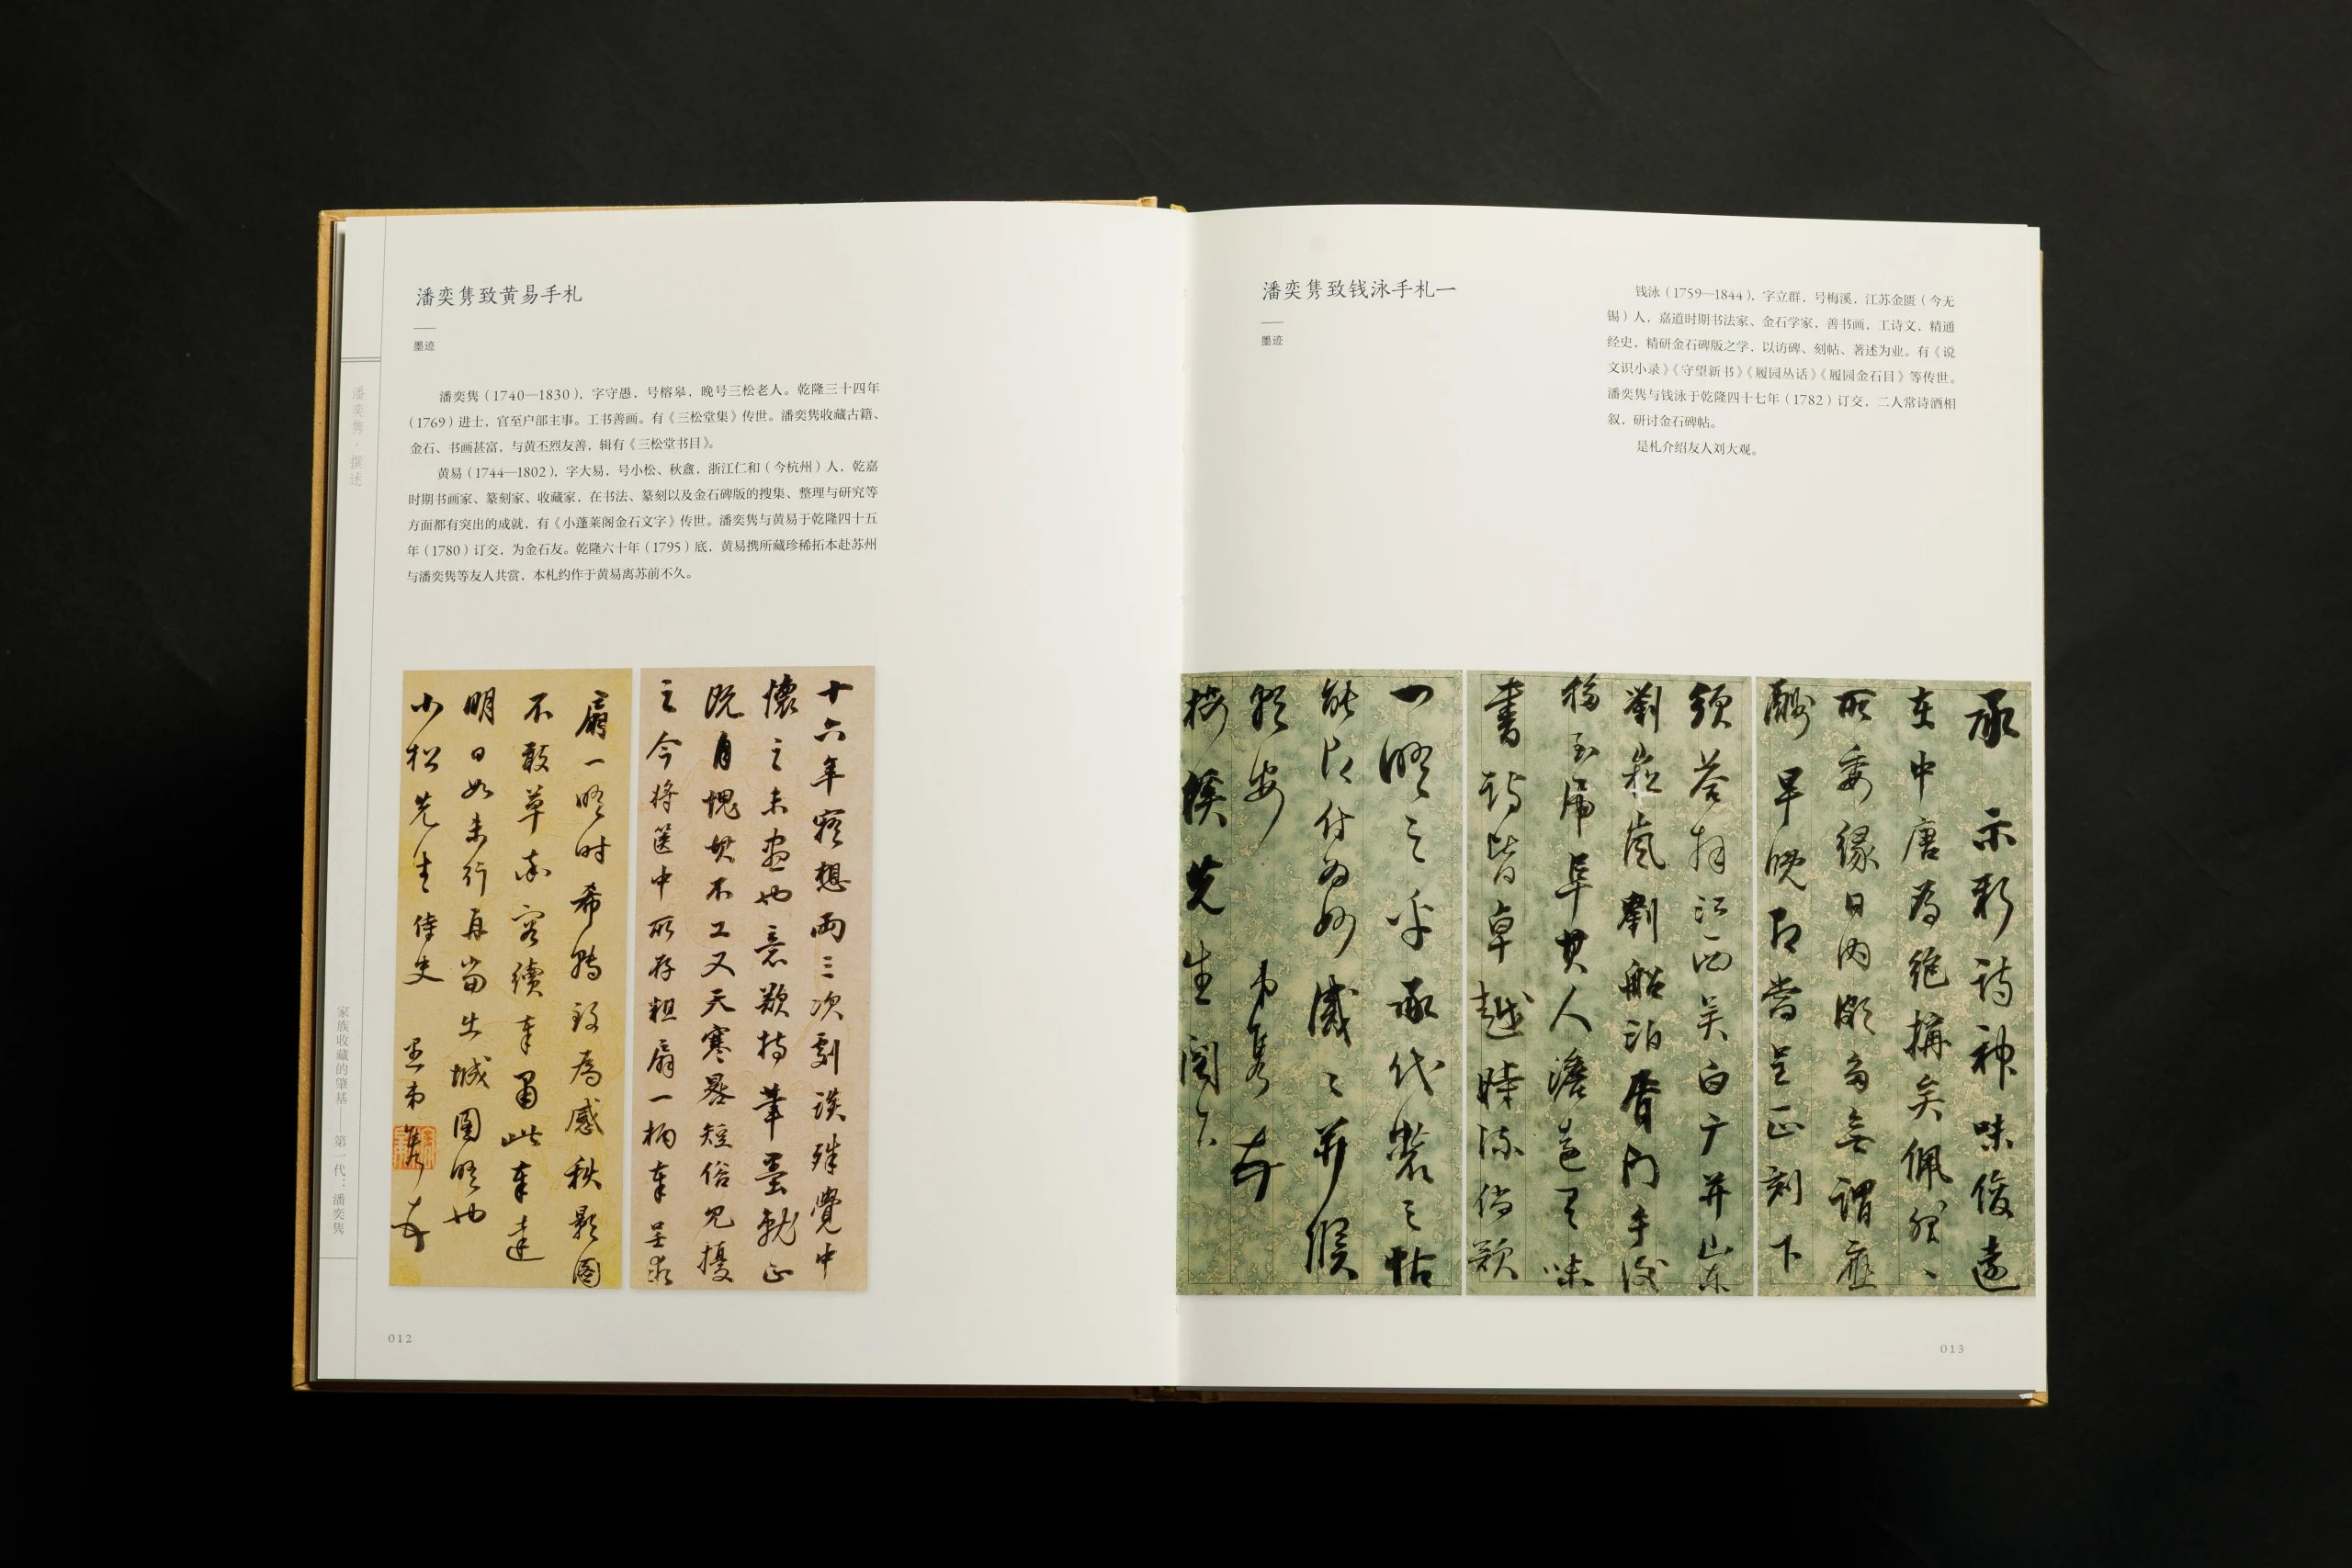 潘奕隽·撰述
家族收藏的肇基——第一代：潘奕隽
潘奕隽致黄易手札
墨迹
潘奕隽（1740—1830），字守愚，号榕皋，晚号三松老人。乾隆三十四年
（1769）进士，官至户部主事。工书善画。有《三松堂集》传世。潘奕隽收藏古籍、
金石、书画甚富，与黄丕烈友善，辑有《三松堂书目》。
黄易（1744—1802），字大易，号小松、秋盦，浙江仁和（今杭州）人，乾嘉
时期书画家、篆刻家、收藏家，在书法、篆刻以及金石碑版的搜集、整理与研究等
方面都有突出的成就，有《小蓬莱阁金石文字》传世。潘奕隽与黄易于乾隆四十五
年（1780）订交，为金石友。乾隆六十年（1795）底，黄易携所藏珍稀拓本赴苏州
与潘奕隽等友人共赏，本札约作于黄易离苏前不久。
十六年寤想兩三次劇談殊覺中
懷之未盡也意欲持筆墨就正
既自愧其不工又天寒晷短俗冗擾
之今将篋中所存粗扇一柄奉呈求
扇一晤时希轉致為感秋影图
不敢草率容續奉圖此奉達
明日如未行再當出城圖晤也
小松先生侍史 愚弟隽
012
潘奕隽致钱泳手札一
墨迹
钱泳（1759—1844），字立群，号梅溪，江苏金匮（今无
锡）人，嘉道时期书法家、金石学家，善书画，工诗文，精通
经史，精研金石碑版之学，以访碑、刻帖、著述为业。有《说
文识小录》《守望新书》《履园丛话》《履园金石目》等传世。
潘奕隽与钱泳于乾隆四十七年（1782）订交，二人常诗酒相
叙，研讨金石碑帖。
是札介绍友人刘大观。
承示新詩神味俊遠
在中唐為絶搆矣佩服、
所委緣日内頗多無謂應
酬早晚即當呈正刻下
須答拜江西吴白广并山东
劉崧嵐劉船泊胥門手
移玉虎阜其人澹逸有味
書詩皆卓越倘欲
一晤之乎承代裝之帖
能即付為妙感之并候
弟隽
梅溪先生閣下
013